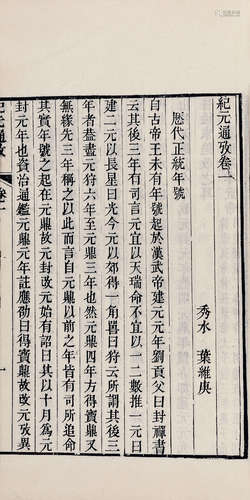 紀元通攷卷一
秀水 葉維庚
歷代正統年號
自古帝王未有年號起於漢武帝建元元年劉貢父曰封禪書
云其後三年有司言元宜以天瑞命不宜以一二數推一元曰
建二元以長星曰光今元以郊得一角獸曰狩云所謂其後三
年者葢盡元狩六年至元鼎三年也然元鼎四年方得寶鼎又
無緣先三年稱之以此而言自元鼎以前之年皆有司所追命
其實年號之起在元鼎故元封改元始有詔曰其以十月為元
封元年也資治通鑑元鼎元年註應劭曰得寶鼎故改元攷異
紀元通攷
卷一
一